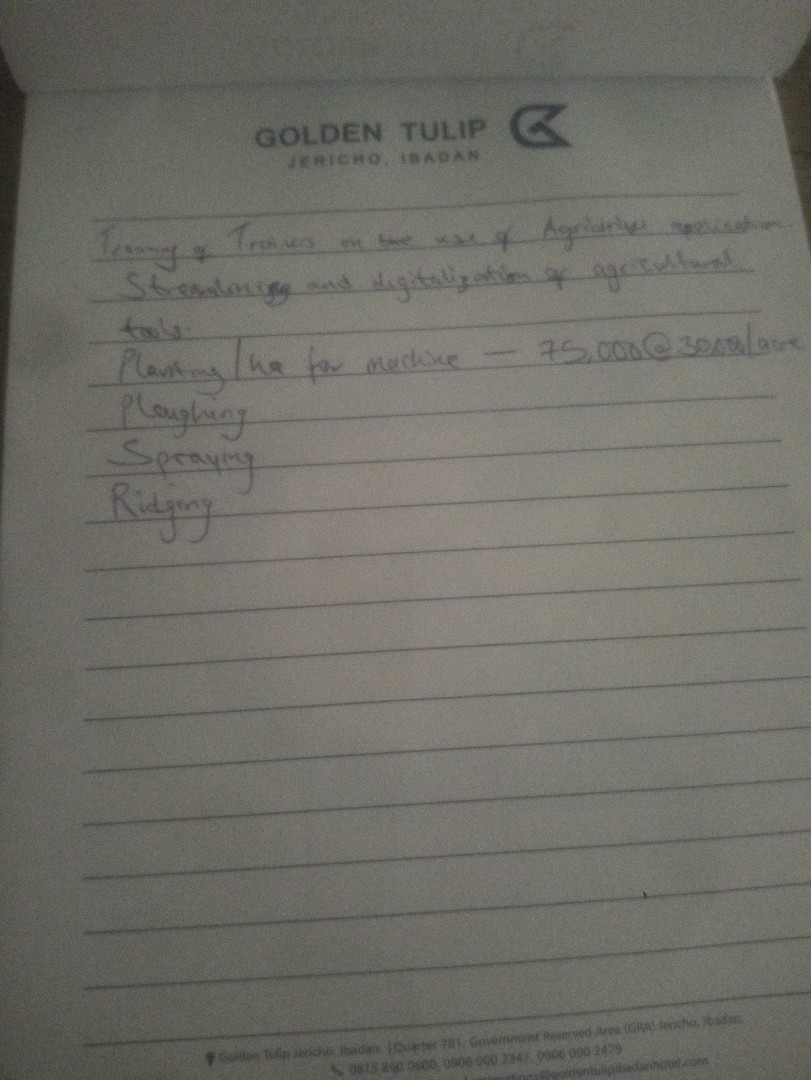 GOLDEN TULIP
JERICHO, IBADAN
Training of Trainers on the use of Agridrive application
Streamlining and digitalization of agricultural
tools.
Planting/ha for machine — 75,000@30,000/acre
Ploughing
Spraying
Ridging
Golden Tulip Jericho, Ibadan. |Quarter 781, Government Reserved Area (GRA) Jericho, Ibadan.
0815 860 0600, 0906 000 2347, 0906 000 2479
@goldentulipibadanhotel.com